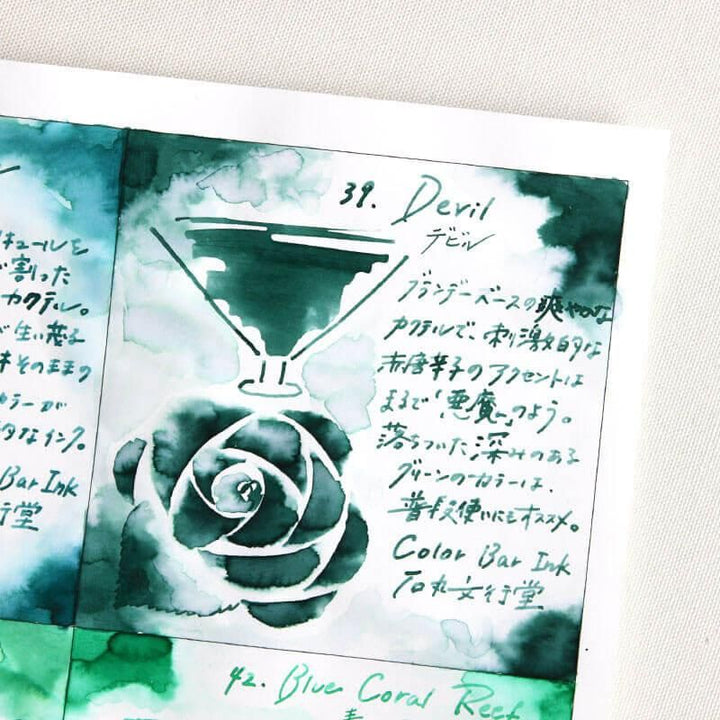 キュールを
割った
カクテル。
が生い茂る
そのままの
カラーが
的なインク。
Bar Ink
行堂
39. Devil
デビル
ブランデーベースの爽やかな
カクテルで、刺激的な
赤唐辛子のアクセントは
まるで「悪魔」のよう。
落ちついた深みのある
グリーンのカラーは、
普段使いにもオススメ。
Color Bar Ink
石丸文行堂
42. Blue Coral Reef